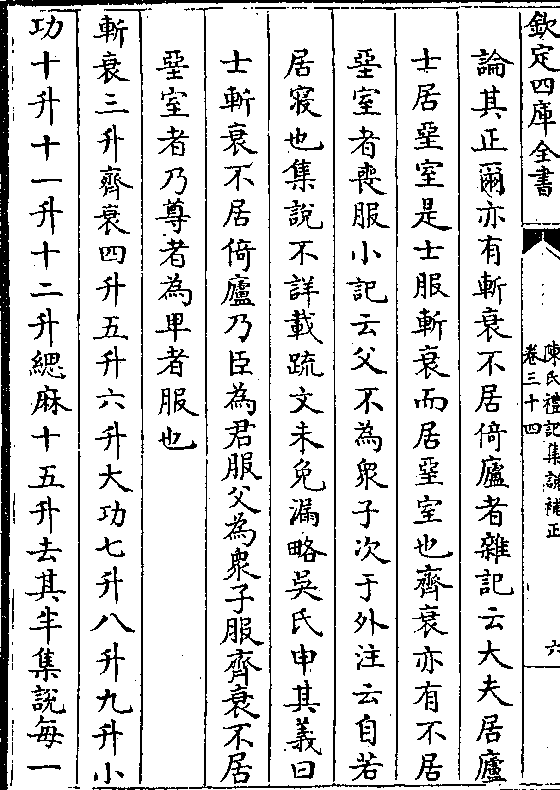 欽定四庫全書
陳氏禮記集說補正
卷三十四
六
論其正爾亦有斬衰不居倚廬者雜記云大夫居廬
士居堊室是士服斬衰而居堊室也齊衰亦有不居
堊室者喪服小記云父不為衆子次于外注云自若
居寢也集說不詳載疏文未免漏略吳氏申其義曰
士斬衰不居倚廬乃臣為君服父為衆子服齊衰不居
堊室者乃尊者為卑者服也
斬衰三升齊衰四升五升六升大功七升八升九升小
功十升十一升十二升緦麻十五升去其半集說每一